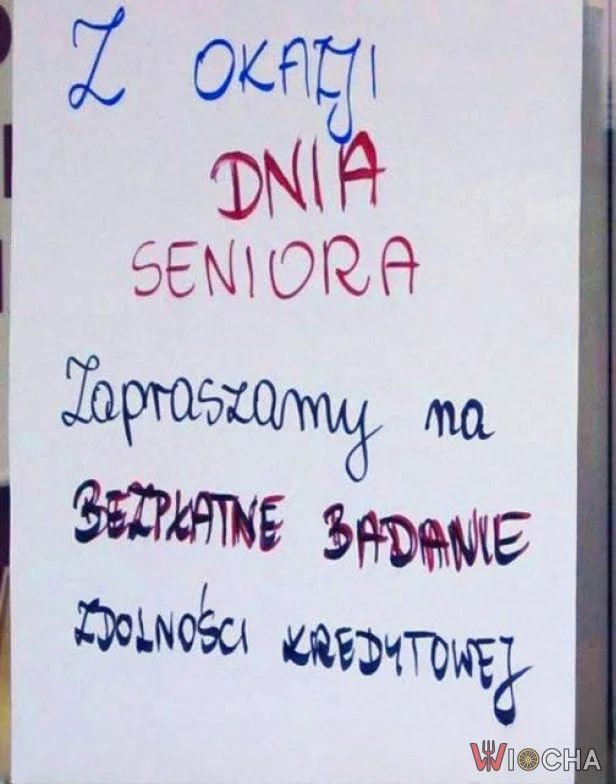 Z OKAZJI
DNIA
SENIORA
Zapraszamy na
BEZPŁATNE BADANIE
ZDOLNOŚCI KREDYTOWEJ
WIOCHA